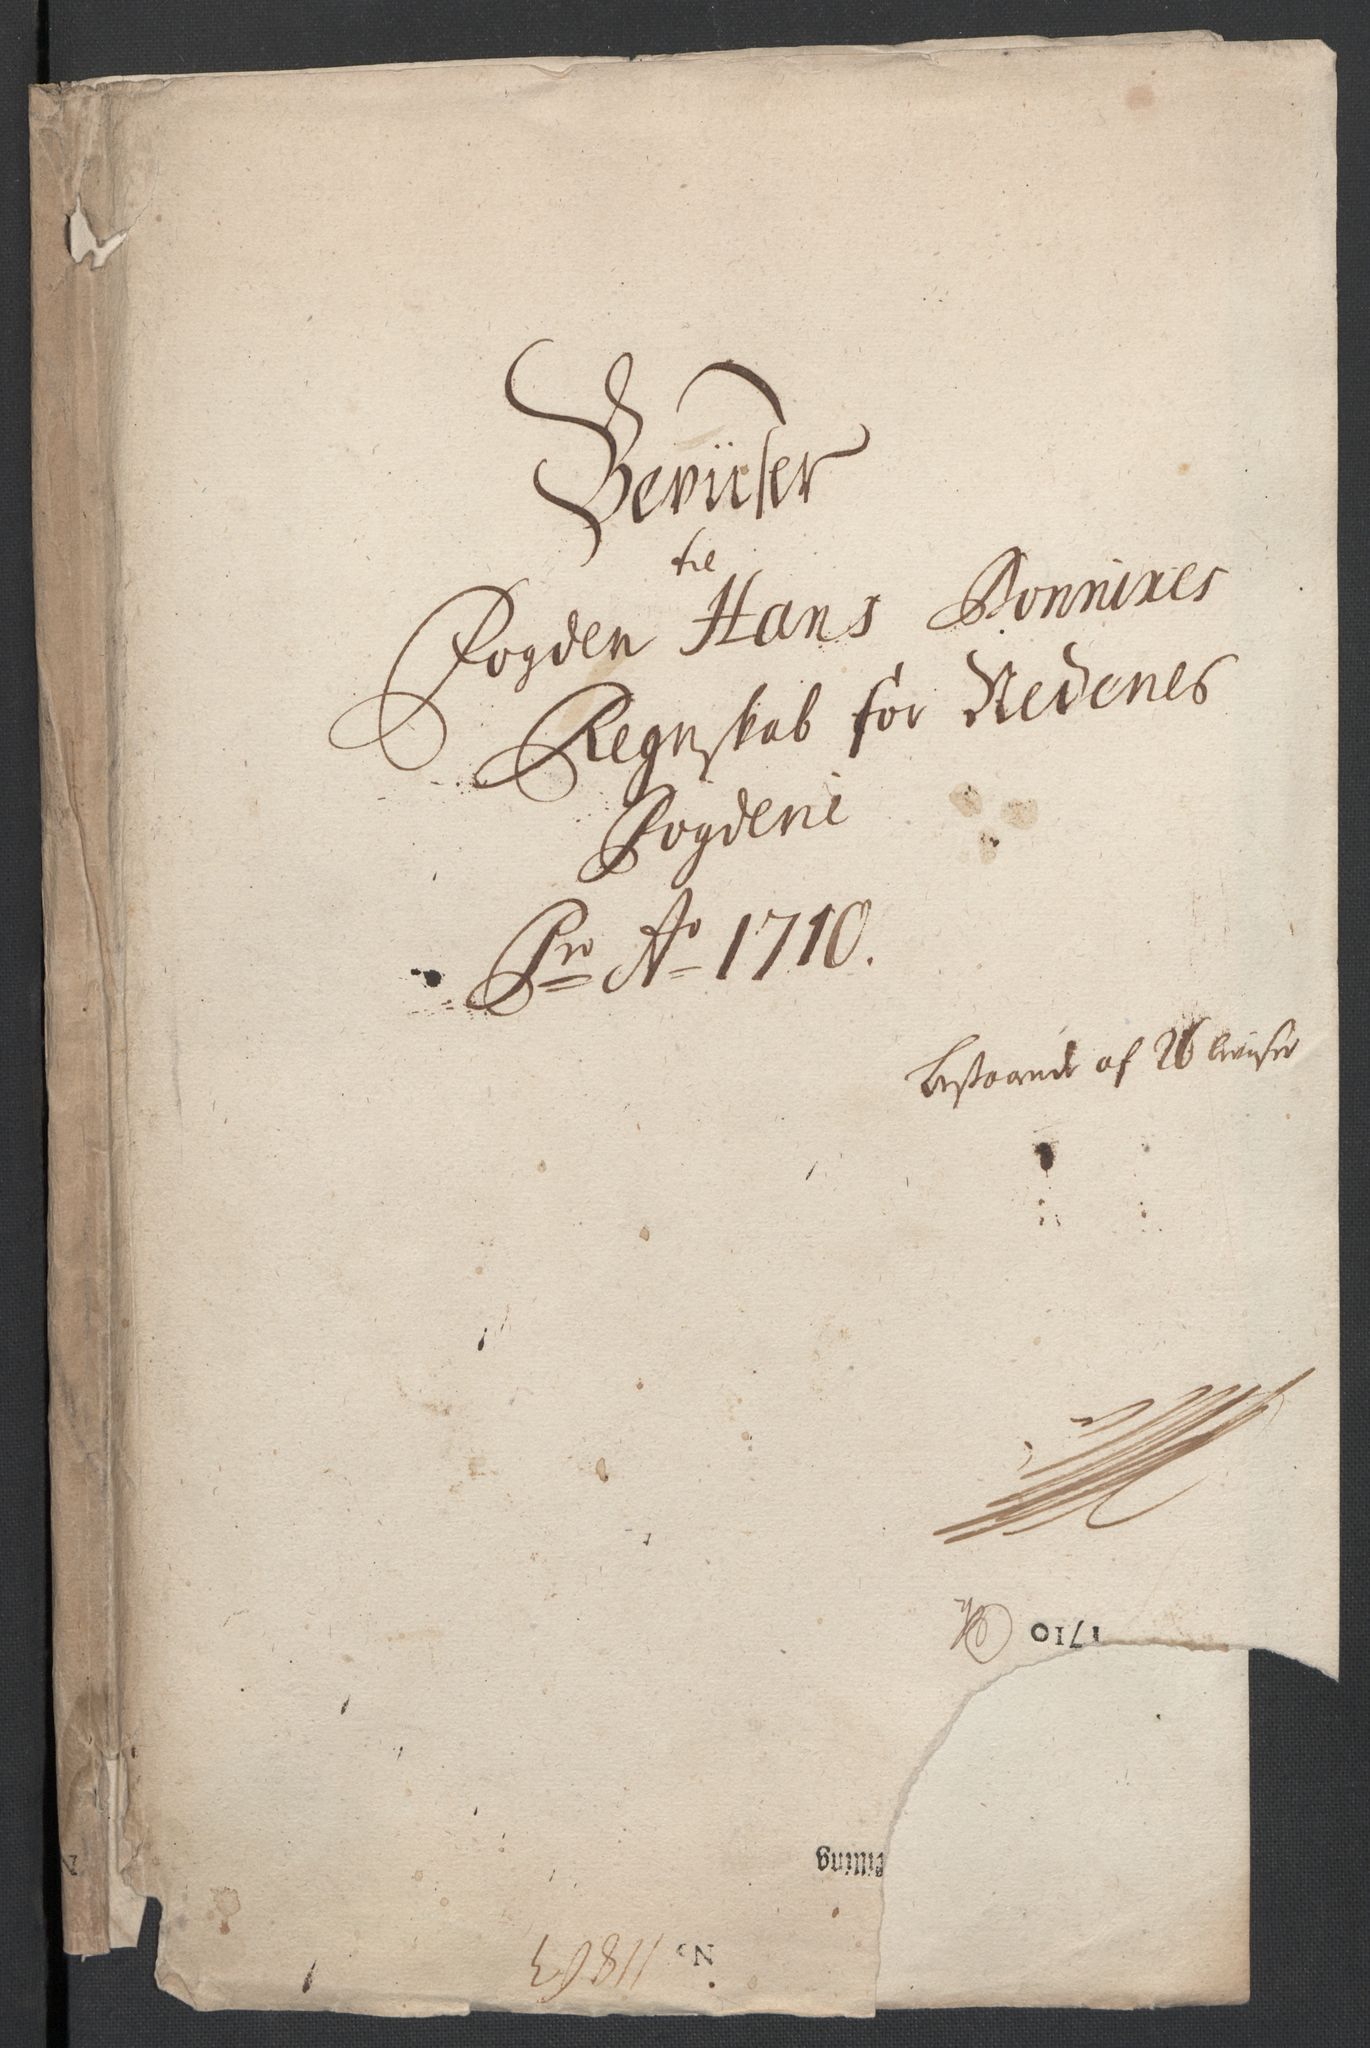 Beviiser
til
Fogden Hans Bonnixes
Regnskab for Nedenes
Fogderie
Pro Ao 1710.
bestaaende af 26 beviser
1710
illing
No 11803